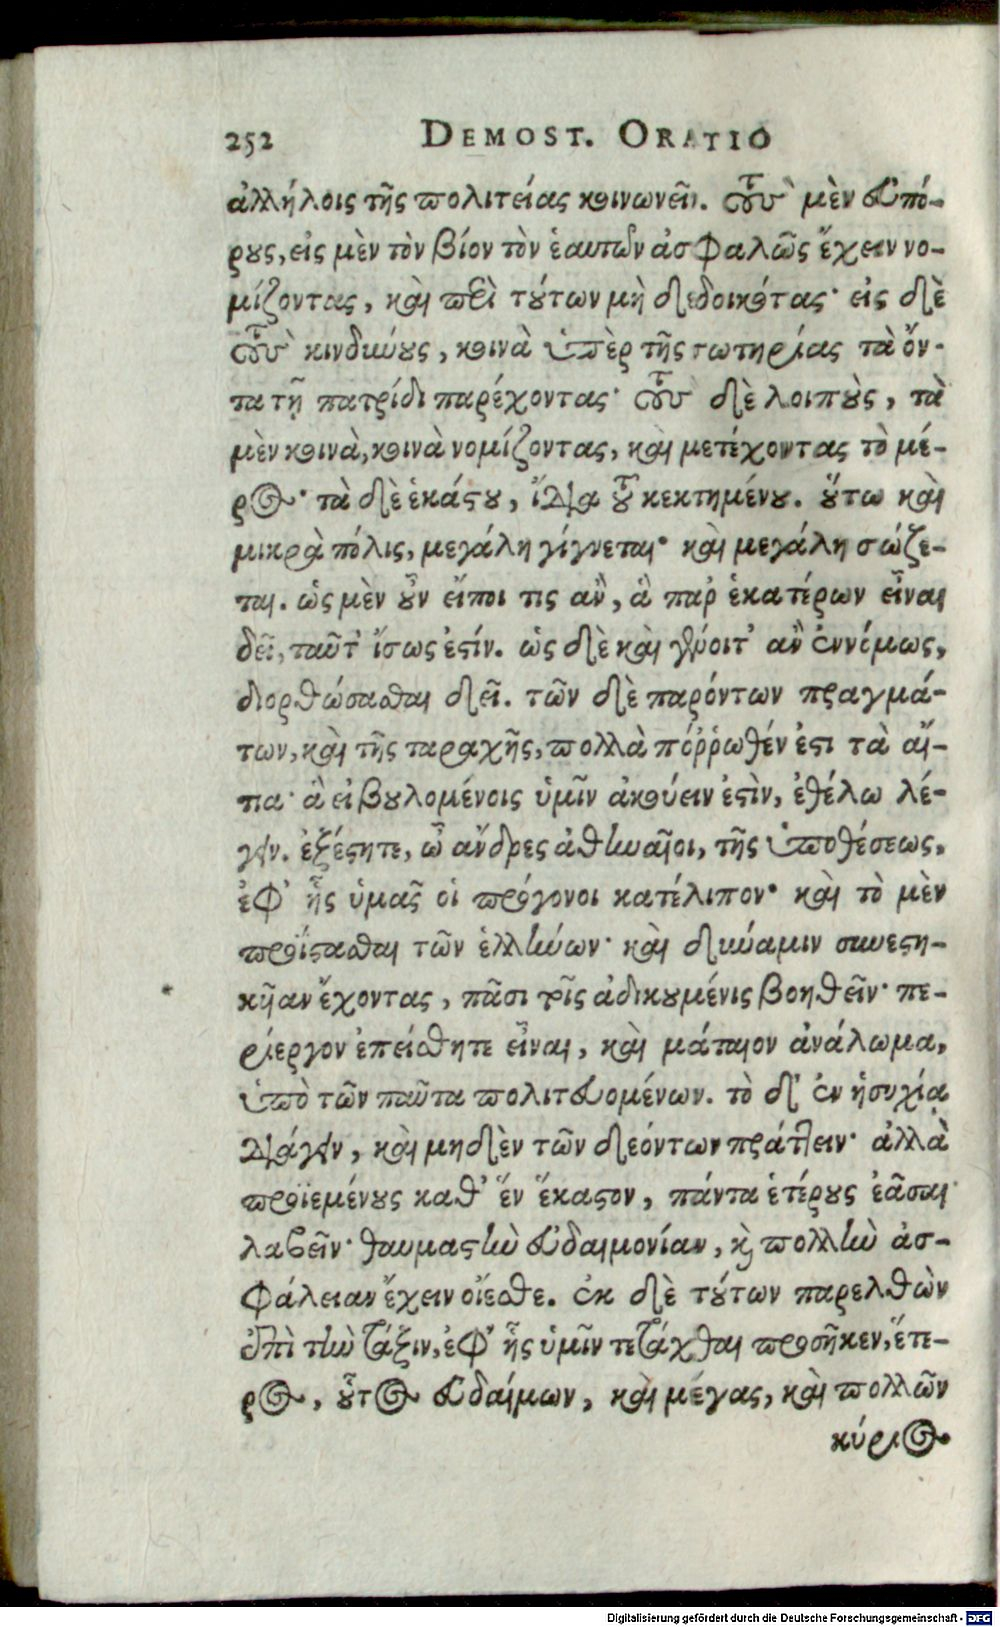 252 DEMOST. ORATIO
ἀλλήλοις τῆς πολιτείας κοινωνεῖν. τοὺς μὲν εὐπό-
ρους, εἰς μὲν τὸν βίον τὸν ἑαυτῶν ἀσφαλῶς ἔχειν νο-
μίζοντας, καὶ περὶ τούτων μὴ δεδοικότας· εἰς δὲ
τοὺς κινδύνους, κοινὰ ὑπὲρ τῆς σωτηρίας τὰ ὄν-
τα τῇ πατρίδι παρέχοντας· τοὺς δὲ λοιποὺς, τὰ
μὲν κοινὰ, κοινὰ νομίζοντας, καὶ μετέχοντας τὸ μέ-
ρος· τὰ δὲ ἑκάστου, ἴδια τοῦ κεκτημένου. οὕτω καὶ
μικρὰ πόλις, μεγάλη γίγνεται· καὶ μεγάλη σώζε-
ται. ὡς μὲν οὖν εἴποι τις ἂν, ἃ παρ' ἑκατέρων εἶναι
δεῖ, ταῦτ' ἴσως ἐστίν. ὡς δὲ καὶ γένοιτ' ἂν ἐννόμως,
διορθώσασθαι δεῖ. τῶν δὲ παρόντων πραγμά-
των, καὶ τῆς ταραχῆς, πολλὰ πόῤῥωθέν ἐστι τὰ αἴ-
τια· ἃ εἰ βουλομένοις ὑμῖν ἀκούειν ἐστὶν, ἐθέλω λέ-
γειν. ἐξέστητε, ὦ ἄνδρες ἀθηναῖοι, τῆς ὑποθέσεως,
ἐφ' ἧς ὑμᾶς οἱ πρόγονοι κατέλιπον· καὶ τὸ μὲν
προΐστασθαι τῶν ἑλλήνων· καὶ δύναμιν συνεστη-
κῆαν ἔχοντας, πᾶσι τοῖς ἀδικουμένοις βοηθεῖν· πε-
ρίεργον ἐπείσθητε εἶναι, καὶ μάταιον ἀνάλωμα,
ὑπὸ τῶν ταῦτα πολιτευομένων. τὸ δ' ἐν ἡσυχίᾳ
διάγειν, καὶ μηδὲν τῶν δεόντων πράττειν· ἀλλὰ
προϊεμένους καθ' ἓν ἕκαστον, πάντα ἑτέρους ἐᾶσαι
λαβεῖν· θαυμαστὴν εὐδαιμονίαν, καὶ πολλὴν ἀσ-
φάλειαν ἔχειν οἴεσθε. ἐκ δὲ τούτων παρελθὼν
ἐπὶ τὴν τάξιν, ἐφ' ἧς ὑμῖν τετάχθαι προσῆκεν, ἕτε-
ρος, οὗτος εὐδαίμων, καὶ μέγας, καὶ πολλῶν
κύριος
Digitalisierung gefördert durch die Deutsche Forschungsgemeinschaft - DFG